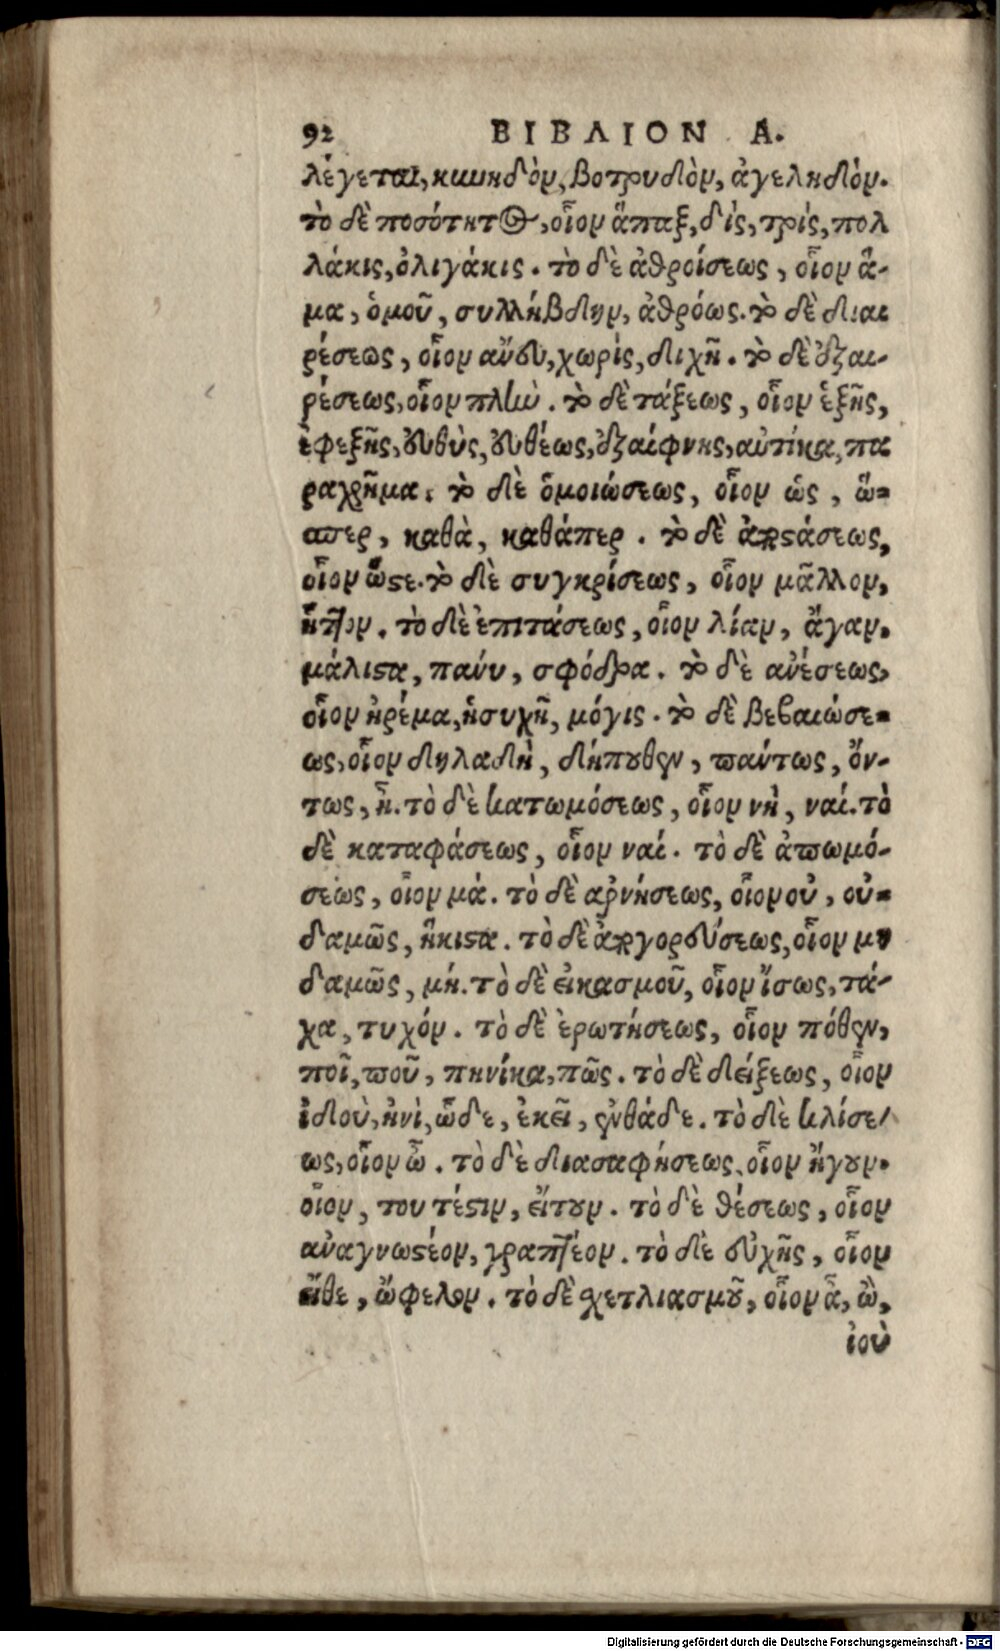 92 ΒΙΒΛΙΟΝ Α.
λέγεται, κωμηδὸν, βοτρυδὸν, ἀγεληδὸν.
τὸ δὲ ποσότητος, οἷον ἅπαξ, δὶς, τρὶς, πολ
λάκις, ὀλιγάκις. τὸ δὲ ἀθροίσεως, οἷον ἅ-
μα, ὁμοῦ, συλλήβδην, ἀθρόως. τὸ δὲ διαι
ρέσεως, οἷον ἄνευ, χωρὶς, διχῆ. τὸ δὲ ἐξαι-
ρέσεως, οἷον πλὴν. τὸ δὲ τάξεως, οἷον ἑξῆς,
ἐφεξῆς, εὐθὺς, εὐθέως, ἐξαίφνης, αὐτίκα, πα
ραχρῆμα. τὸ δὲ ὁμοιώσεως, οἷον ὡς, ὥ-
σπερ, καθὰ, καθάπερ. τὸ δὲ παραστάσεως,
οἷον ὥστε. τὸ δὲ συγκρίσεως, οἷον μᾶλλον,
ἧττον. τὸ δὲ ἐπιτάσεως, οἷον λίαν, ἄγαν,
μάλιστα, πάνυ, σφόδρα. τὸ δὲ ἀνέσεως,
οἷον ἠρέμα, ἡσυχῆ, μόγις. τὸ δὲ βεβαιώσε-
ως, οἷον δηλαδὴ, δήπουθεν, πάντως, ὄν-
τως, ἦ. τὸ δὲ κατωμόσεως, οἷον νὴ, ναί. τὸ
δὲ καταφάσεως, οἷον ναί. τὸ δὲ ἀπωμό-
σεως, οἷον μά. τὸ δὲ ἀρνήσεως, οἷον οὐ, οὐ-
δαμῶς, ἥκιστα. τὸ δὲ ἀπαγορεύσεως, οἷον μη
δαμῶς, μή. τὸ δὲ εἰκασμοῦ, οἷον ἴσως, τά-
χα, τυχόν. τὸ δὲ ἐρωτήσεως, οἷον πόθεν,
ποῖ, ποῦ, πηνίκα, πῶς. τὸ δὲ δείξεως, οἷον
ἰδοὺ, ἠνὶ, ὧδε, ἐκεῖ, ἐνθάδε. τὸ δὲ κλίσε-
ως, οἷον ὦ. τὸ δὲ διασαφήσεως, οἷον ἤγουν,
οἷον, τουτέστιν, εἴτουν. τὸ δὲ θέσεως, οἷον
ἀναγνωστέον, γραπτέον. τὸ δὲ εὐχῆς, οἷον
εἴθε, ὤφελον. τὸ δὲ σχετλιασμοῦ, οἷον ἆ, ὢ,
ἰοὺ
Digitalisierung gefördert durch die Deutsche Forschungsgemeinschaft - DFG